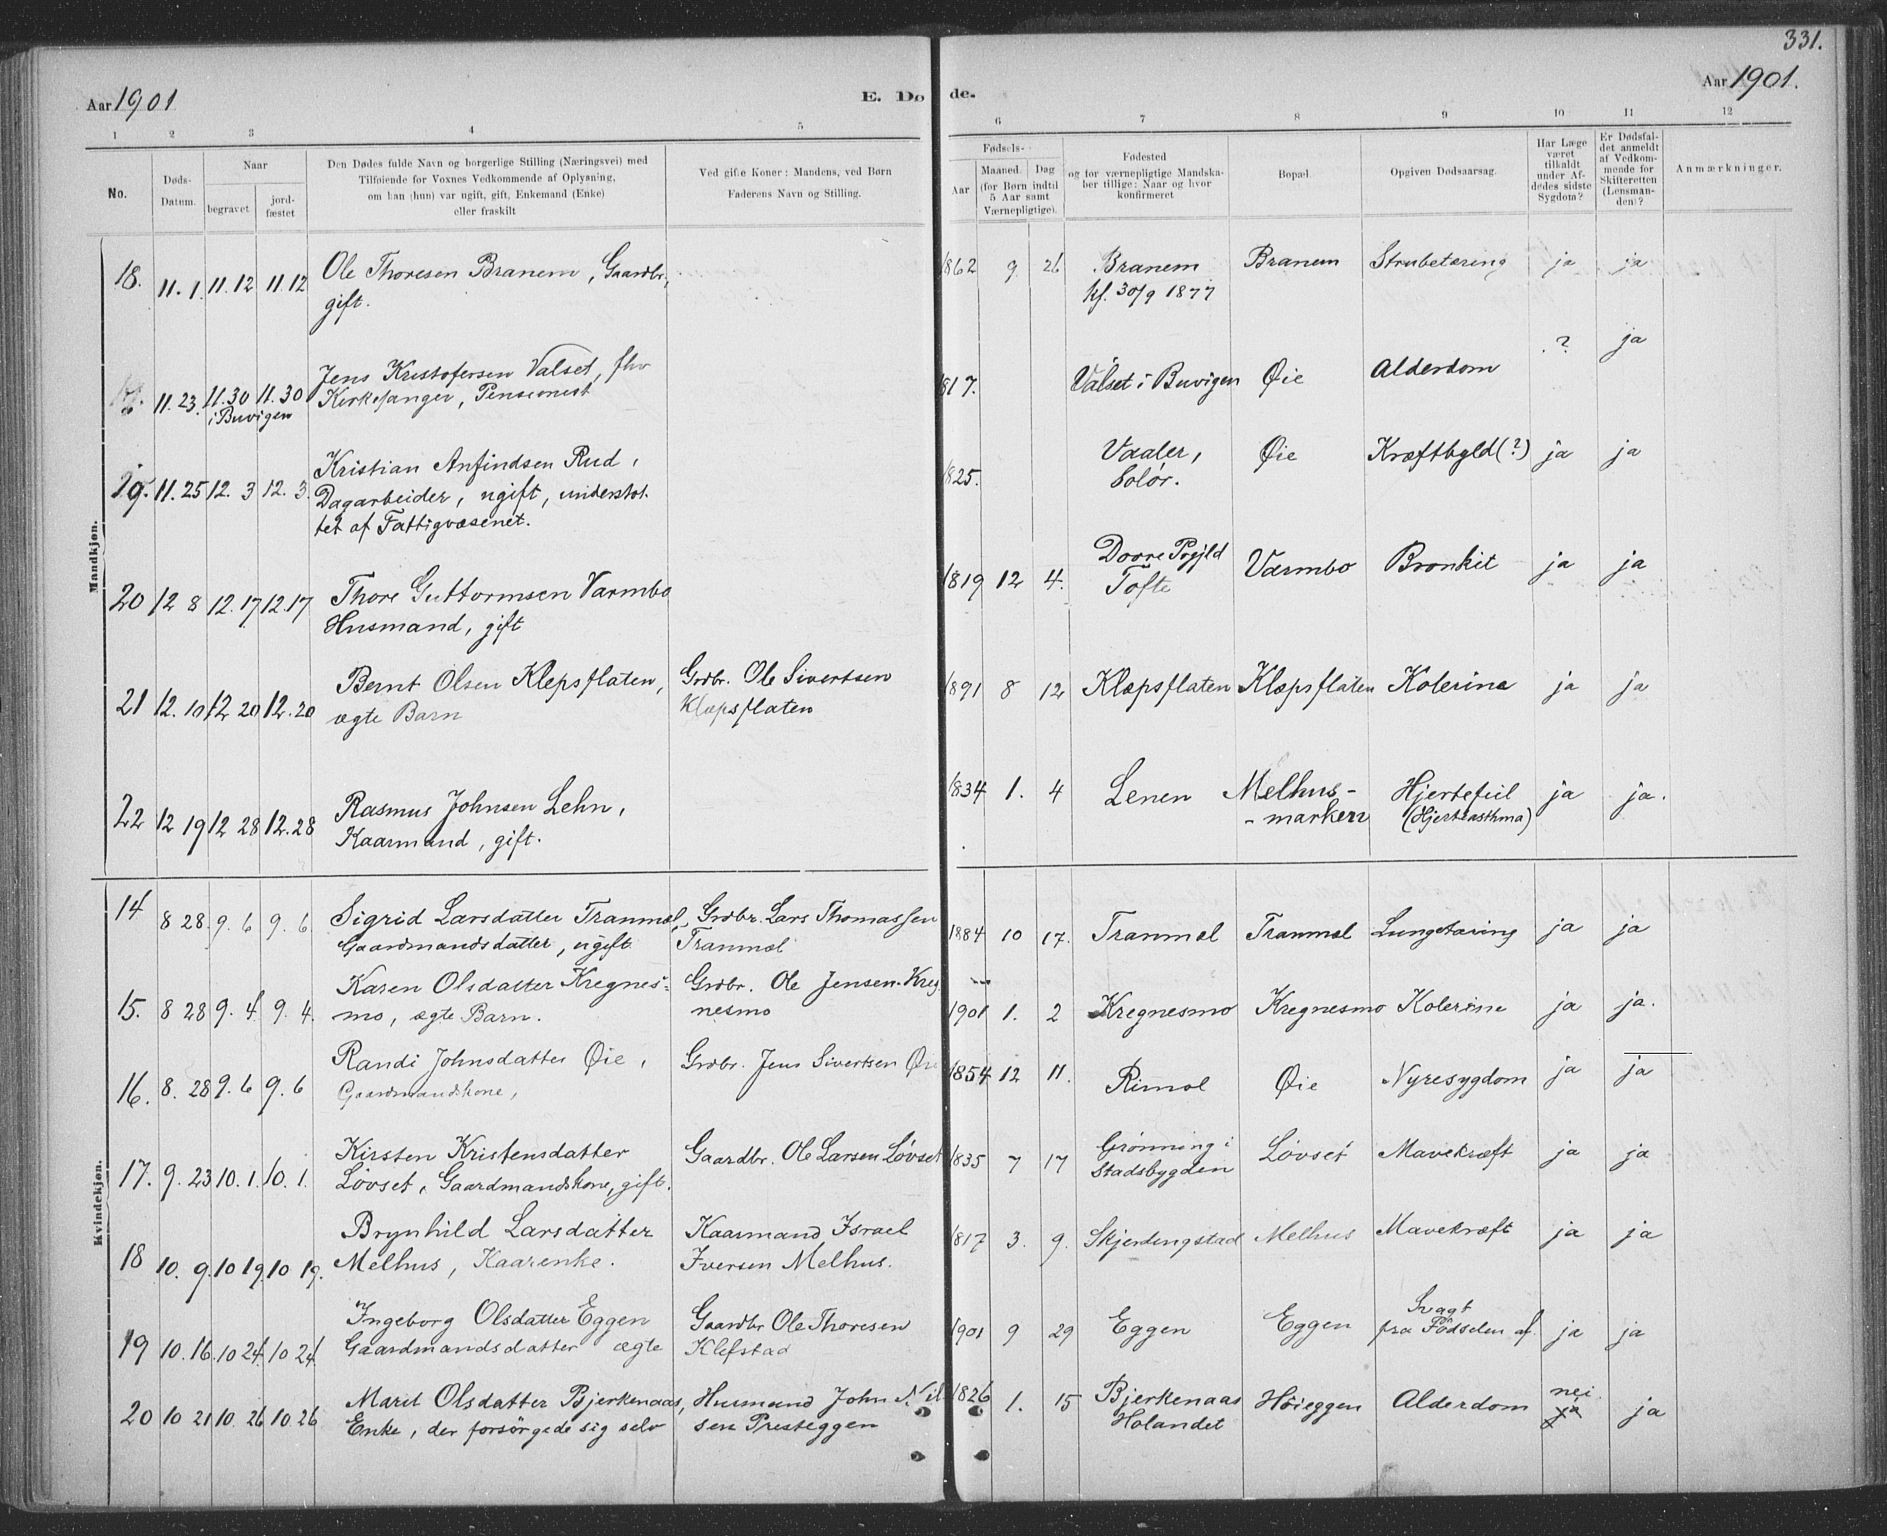 331.
Aar 1901 E. Dø de. Aar 1901.
1 2 3 4 5 6 7 8 9 10 11 12
No.
Døds-
Datum.
Naar
begravet
jord-
fæstet
Den Dødes fulde Navn og borgerlige Stilling (Næringsvei) med
Tilføiende for Voxnes Vedkommende af Oplysning,
om han (hun) var ugift, gift, Enkemand (Enke)
eller fraskilt
Ved gifte Koner: Mandens, ved Børn
Faderens Navn og Stilling.
Fødsels-
Aar
Maaned. Dag
(for Børn indtil
5 Aar samt
Værnepligtige).
Fødested
og for værnepligtige Mandska-
ber tillige: Naar og hvor
konfirmeret
Bopæl.
Opgiven Dødsaarsag.
Har Læge
været
tilkaldt
under Af-
dødes sidste
Sygdom?
Er Dødsfal-
det anmeldt
af Vedkom-
mende for
Skifteretten
(Lensman-
den)?
Anmærkninger.
Mandkjøn.
18. 11. 1. 11. 12 11. 12 Ole Thoresen Branem, Gaardbr., 1862 9 26 Branem Branem Strubetæring ja ja
gift. kf. 30/9 1877
11. 23. 11. 30 11. 30 Jens Kristofersen Valset, fhv 1817. Valset i Buvigen Øie Alderdom ? ja
i Buvigen Kirkesanger, Pensionist
19. 11. 25 12. 3 12. 3. Kristian Anfindsen Rud, 1825. Vaaler, Øie Kræftbyld (?) ja ja
Dagarbeider, ugift, understøt- Solør.
tet af Fattigvæsenet.
20 12 8 12. 17 12. 17 Thore Guttormsen Varmbo 1819 12 4. Dovre Prgjld Varmbo Bronkit ja ja
Husmand, gift Tofte
21 12. 10 12 20 12. 20 Bernt Olsen Klepsflaten, Grdbr. Ole Sivertsen 1891 8 12 Klæpsflaten Klæpsflaten Kolerine ja ja
ægte Barn Klæpsflaten
22 12 19 12 28 12. 28 Rasmus Johnsen Lehn, 1834 1. 4 Lenen Melhus- Hjertefeil ja ja.
Kaarmand, gift. - marken (Hjerteasthma)
Kvindekjøn.
14 8 28. 9. 6 9. 6. Sigrid Larsdatter Tranmæl, Grdbr. Lars Thomassen 1884 10 17. Tranmæl Tranmæl Lungetæring ja ja
Gaardmandsdatter, ugift Tranmæl
15. 8 28 9. 4. 9. 4. Karen Olsdatter Kregnes- Grdbr. Ole Jensen Kreg- 1901 1. 2 Kregnesmo Kregnesmo Kolerine ja ja.
mo, ægte Barn. nesmo
16. 8. 28 9. 6 9. 6 Randi Johnsdatter Øie, Grdbr. Jens Sivertsen Øie 1854 12 11. Rimol Øie Nyresygdom ja ja
Gaardmandskone,
17. 9. 23 10. 1. 10. 1. Kirsten Kristensdatter Gaardbr. Ole Larsen Løvset 1835 7 17 Grønning i Løvset Mavekræft ja ja
Løvset, Gaardmandskone, gift. Stadsbygden
18 10. 9. 10 19. 10 19. Brynhild Larsdatter Kaarmand Israel 1817 3. 9. Skjerdingstad Melhus Mavekræft ja ja
Melhus, Kaarenke. Iversen Melhus.
19 10. 16. 10 24. 10 24. Ingeborg Olsdatter Eggen Gaardbr Ole Thoresen 1901 9 29 Eggen Eggen Svagt ja ja
Gaardmandsdatter ægte Klefstad fra Fødselen af.
20 10 21 10. 26 10. 26 Marit Olsdatter Bjerkenaas, Husmand John Nil 1826 1. 15 Bjerkenaas Høieggen Alderdom nei ja
Enke, der forsørgede sig selv sen Presteggen Holandet ja